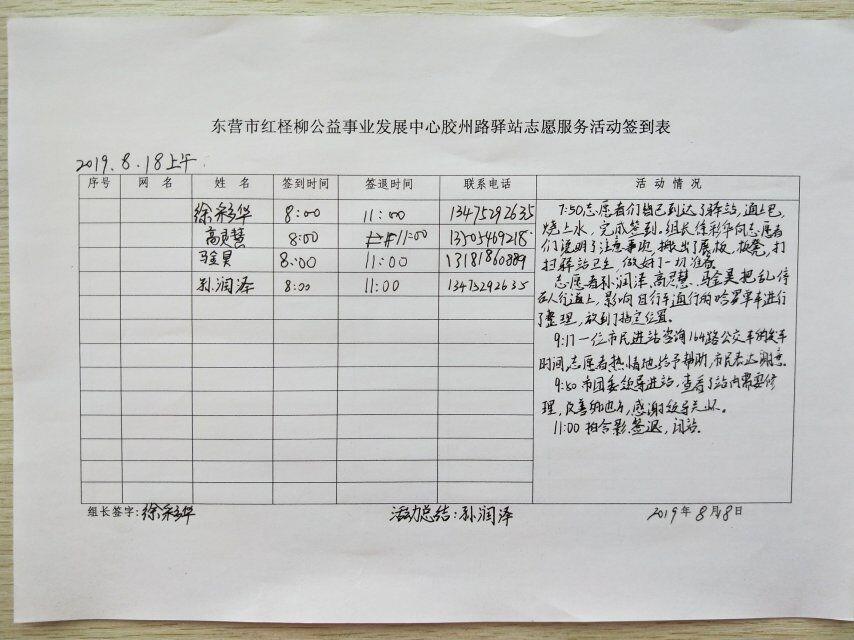 东营市红柽柳公益事业发展中心胶州路驿站志愿服务活动签到表
2019.8.18上午
序号 网名 姓名 签到时间 签退时间 联系电话 活动情况
徐彩华 8:00 11:00 13475292635
高灵慧 8:00 11:00 13505469218
马金昊 8:00 11:00 13181860889
孙润泽 8:00 11:00 13475292635
7:50志愿者们皆已到达了驿站,通上电,
烧上水,完成签到,组长徐彩华向志愿者
们说明了注意事项,搬出了展板,板凳,打
扫驿站卫生,做好了一切准备。
志愿者孙润泽,高灵慧、马金昊把乱停
在人行道上,影响自行车通行的哈罗单车进行
了整理,放到了指定位置。
9:17一位市民进站咨询164路公交车的发车
时间,志愿者热情地给予帮助,市民表达谢意。
9:50市团委领导进站,查看了站内需要修
理,改善的地方,感谢领导关怀。
11:00拍合影,签退,闭站。
组长签字:徐彩华 活动总结:孙润泽 2019年8月18日